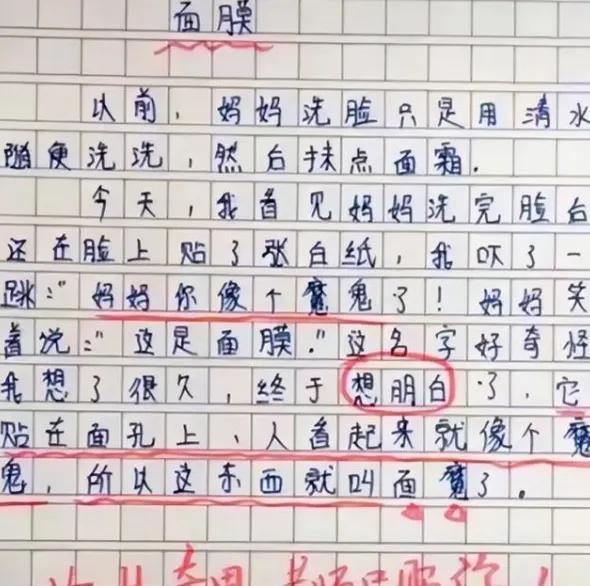 面膜
以前，妈妈洗脸只是用清水
随便洗洗，然后抹点面霜.
今天，我看见妈妈洗完脸后
还在脸上贴了张白纸，我吓了一
跳："妈妈你像个魔鬼了！妈妈笑
着说："这是面膜."这名字好奇怪
我想了很久，终于想明白了，它
贴在面孔上、人看起来就像个魔
鬼，所以这东西就叫面魔了。